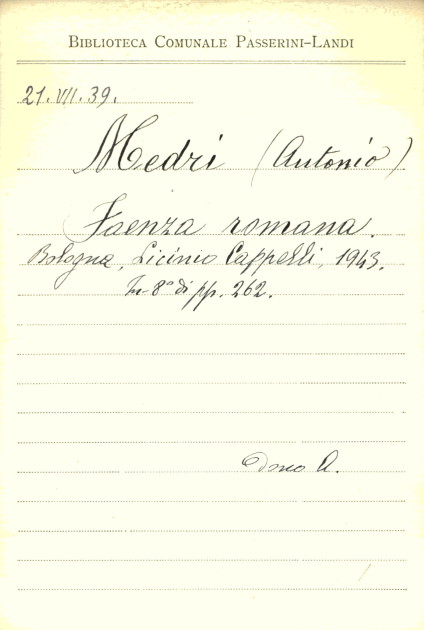 BIBLIOTECA COMUNALE PASSERINI-LANDI
21.VII.39.
Medri (Antonio)
Faenza romana.
Bologna, Licinio Cappelli, 1943.
In-8° di pp. 262.
Dono A.